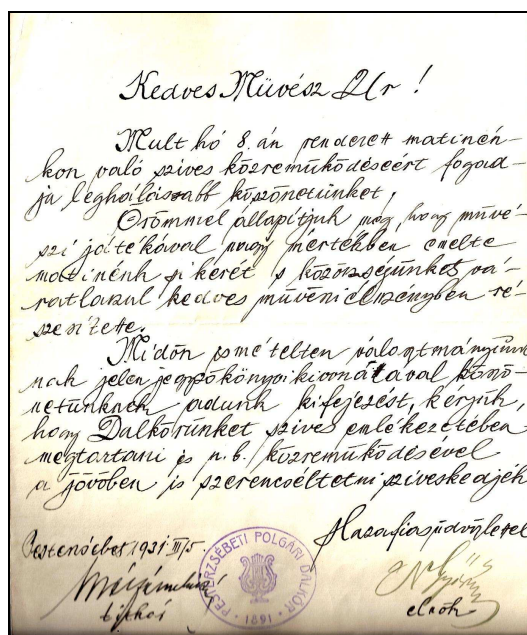 Kedves Müvész Ur !
Mult hó 8.án rendezett matinén-
kon való szives közremüködéseért fogad-
ja leghálásabb köszönetünket.
Örömmel állapitjuk meg, hogy müvé-
szi játékával nagy mértékben emelte
matinénk sikerét s közönségünket vá-
ratlanul kedves müvéni élményben ré-
szesitette.
Midőn ismételten választmányunk-
nak jelen jegyzőkönyvi kivonatával köszö-
netünknek adunk kifejezést, kérjük,
hogy Dalkörünket szives emlékezetében
megtartani és n. b. közremüködésével
a jövőben is szerencséltetni sziveskedjék
Hazafias üdvözlettel
1931 III/5.
PESTERZSÉBETI POLGÁRI DALKÖR
1891
titkár
elnök